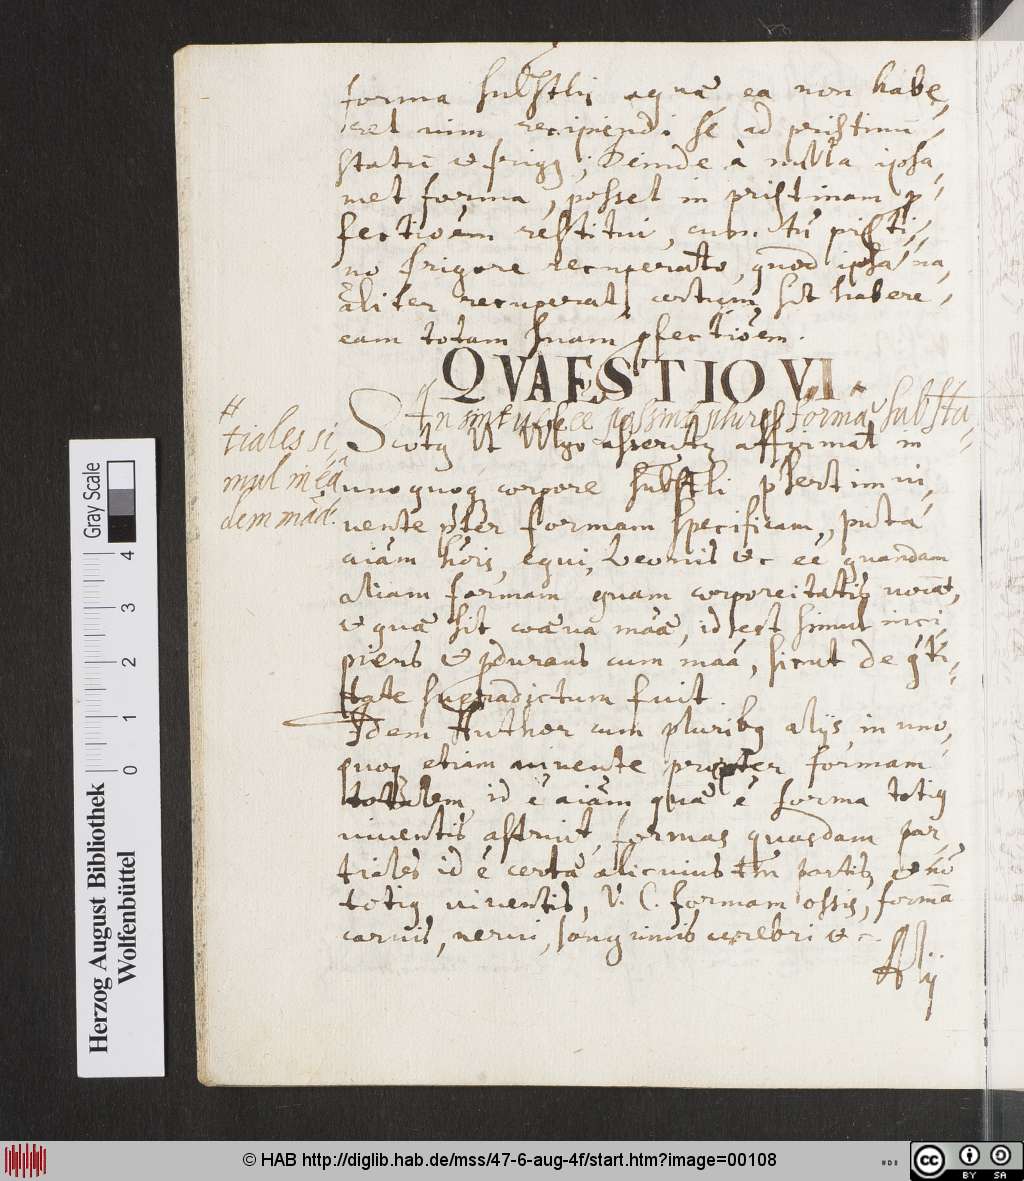 forma subst͞lis aquā ea non habe,
ret vim recipiendi se ad pristinū
statū & frigg; Deinde à nulla ipsa,
met forma, posset in pristinam p,
fectioēm restitui, cum tū pristi,
no frigore recuperato, quod ipsa na,
āliter recuperat, certum sit habere
eam totam suam pfectioēm.
QVAESTIO VI.
An sint vel eē possint plures formæ substa
tiales si,
mul in eā
dem māā.
Scotg ut vulgo asseritr affirmat in
unoquoq corpore subst͞li psertim vi,
vente pter formam specificam, puta
aīam hōis, equi, Leonis &c eē quandam
aliam formam quam corporeitatis vocāt,
& quæ sit coæva māā, id est simul inci,
piens & pdurans cum māā, sicut de qti,
tate supradictum fuit
Idem Author cum pluribg alijs in uno,
quoq etiam vivente propter formam
totalem, id ē aīam quæ ē forma totig
viventis astruit formas quasdam par,
tiales id ē certæ alicuius tm̄ partis, & nō
totig viventis, V. C. formam ossis, formā
carnis, nervi, sanguinis cerebri &c.
Alij
Gray Scale
4
3
2
1
0
Herzog August Bibliothek
Wolfenbüttel
© HAB http://diglib.hab.de/mss/47-6-aug-4f/start.htm?image=00108
cc
BY SA